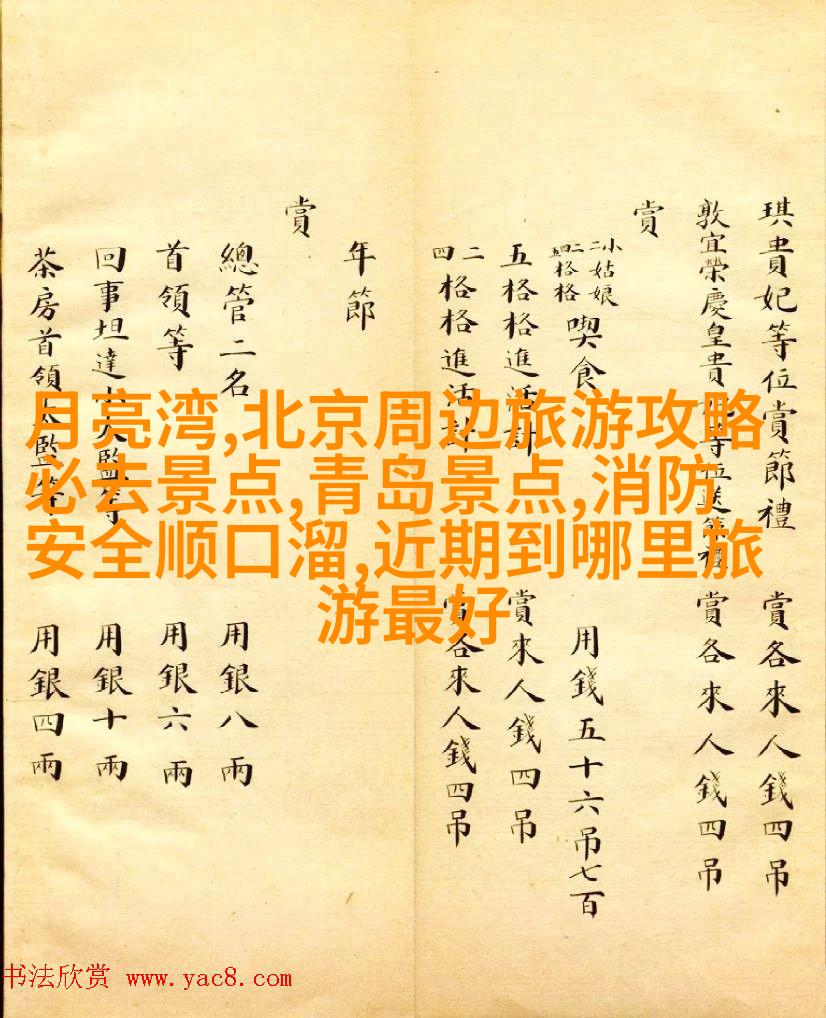 琪貴妃等位賞節禮 賞各來人錢四吊
敦宜榮慶皇貴妃等位送節禮 賞各來人錢四吊
賞
小姑娘 格格 喫食 用錢五十六吊七百
五格格進活計 賞來人錢四吊
二四格格進活計 賞各來人錢四吊
年節
賞
總管二名 用銀八兩
首領等 用銀六兩
回事坦達太監等 用銀十兩
茶房首領太監等 用銀四兩
月亮湾,北京周边旅游攻略
必去景点,青岛景点,消防
安全顺口溜,近期到哪里旅
游最好
书法欣赏 www.yac8.com